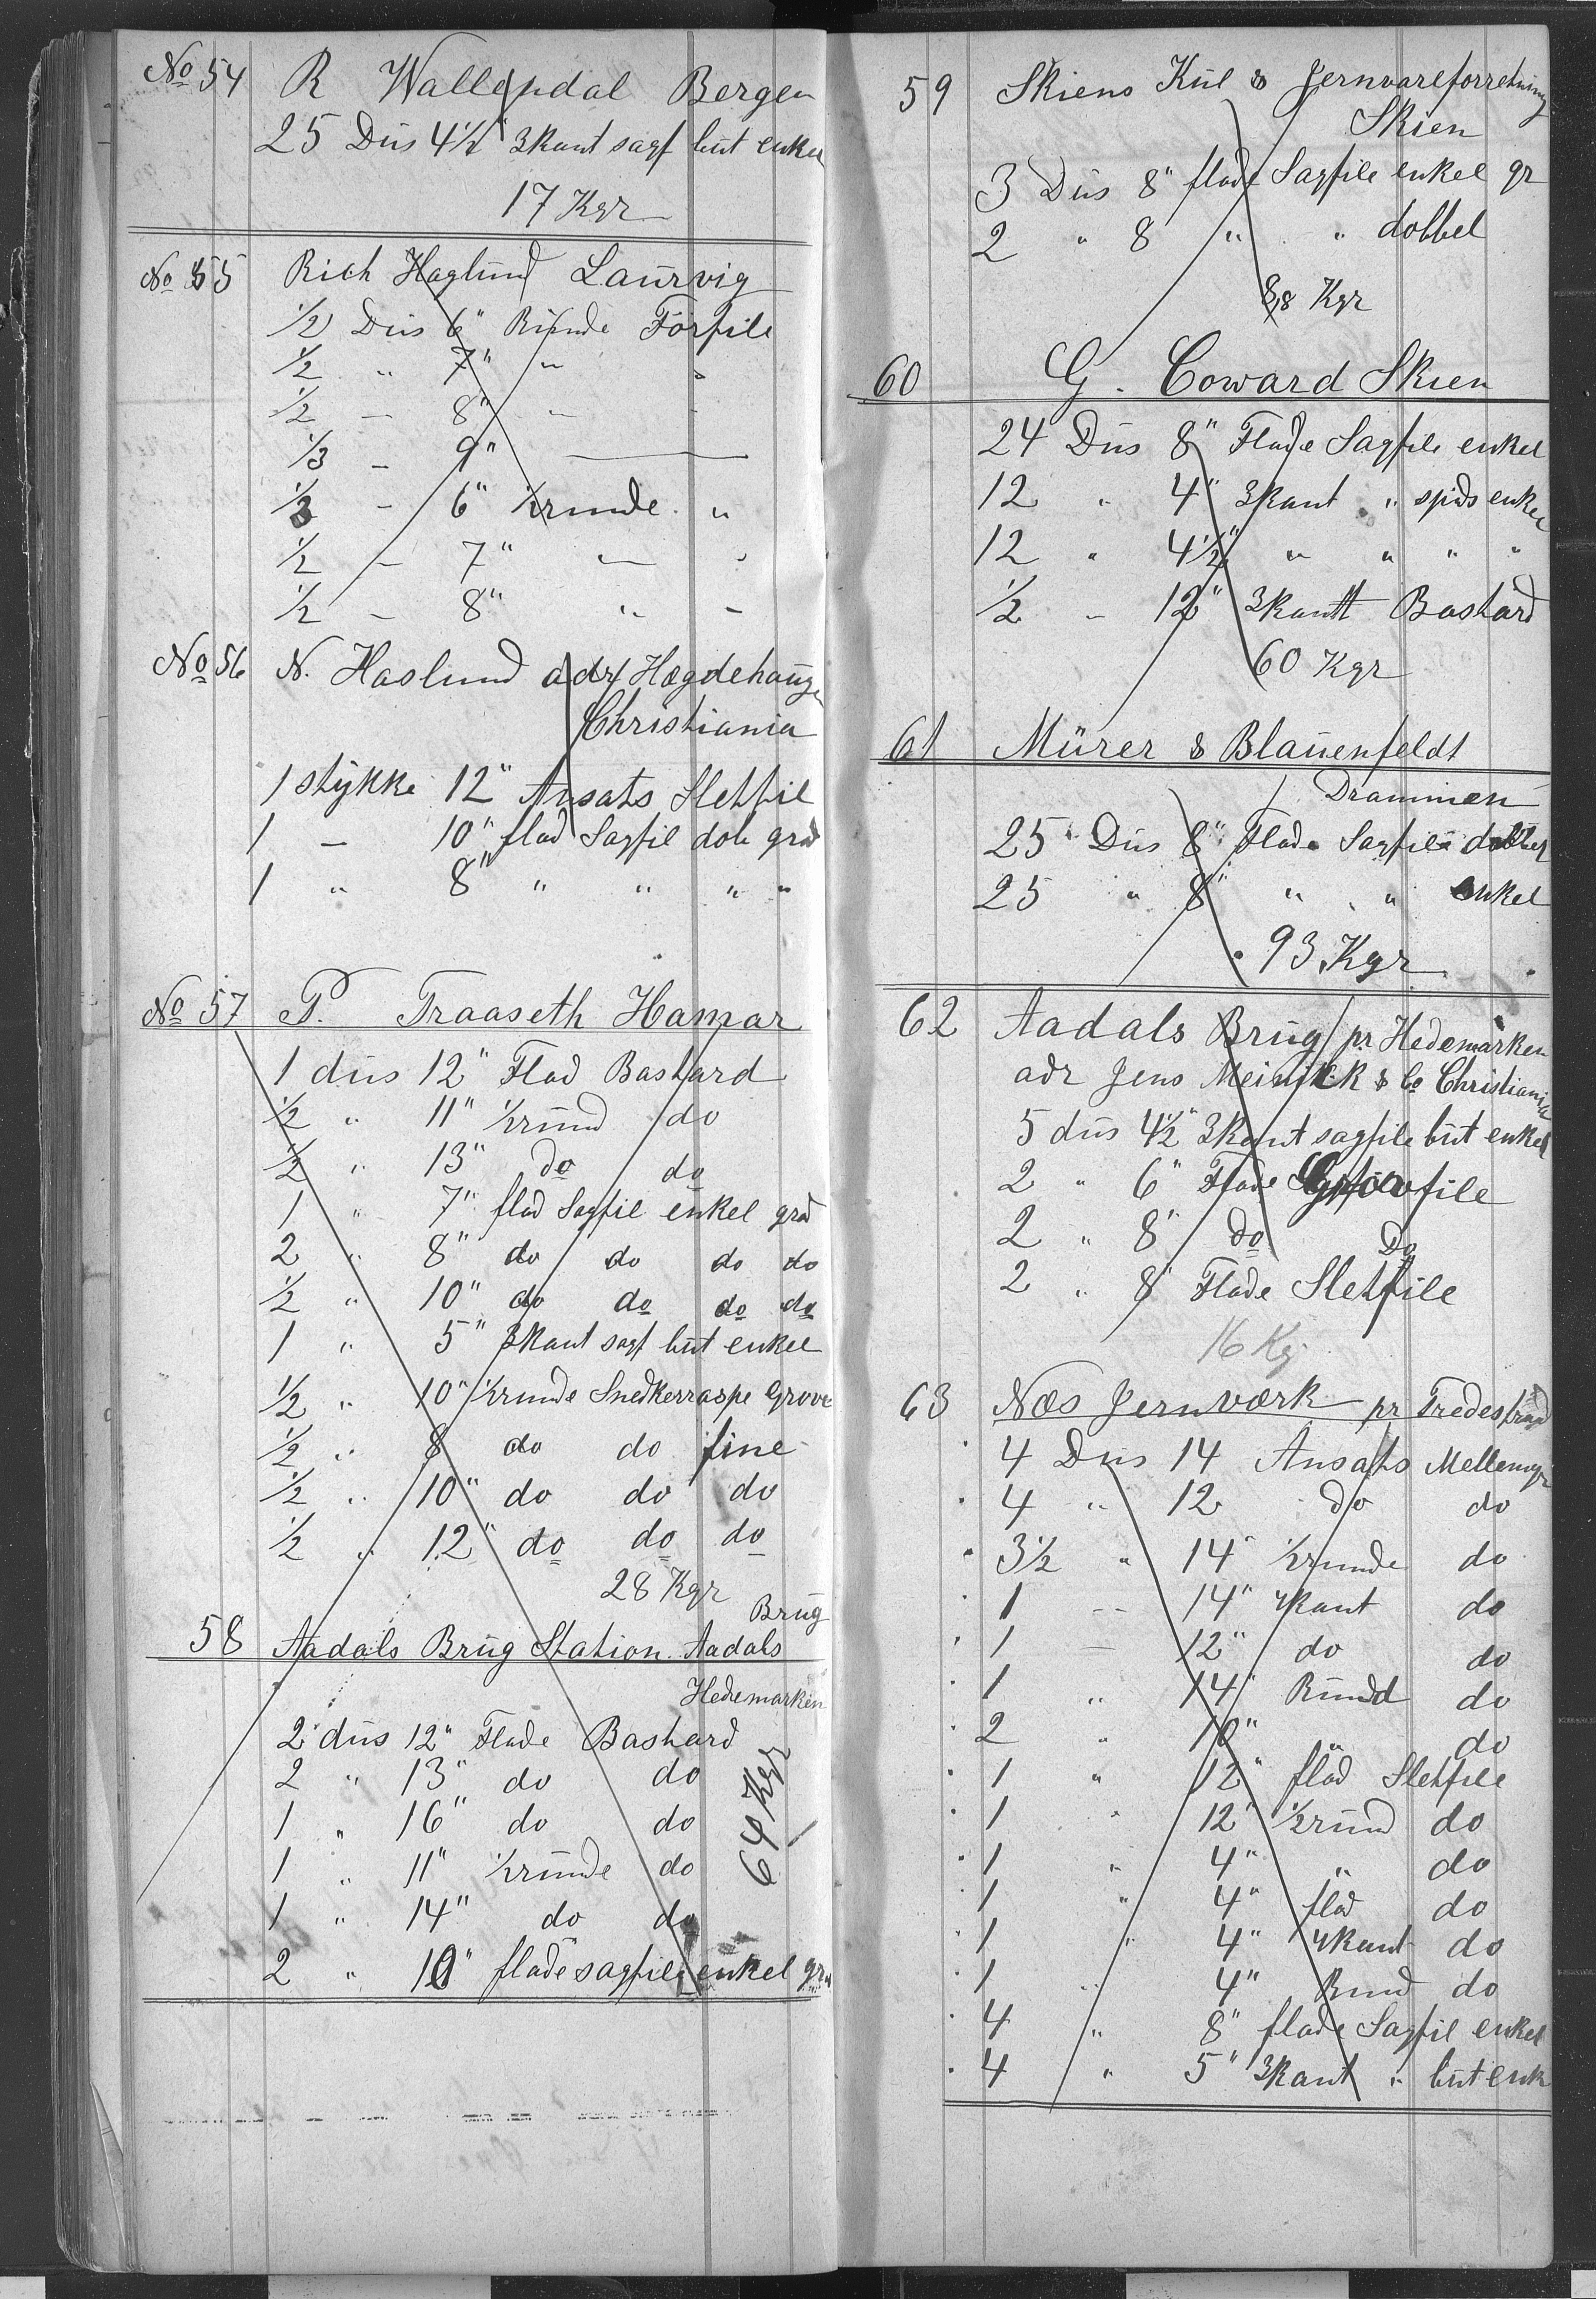 No 54 R Wallendal Bergen
25 Düs 4½" 3kant sagf büt enkel
17 Kgr
No 55 Rich Haglund Laürvig
½ Düs 6" Runde Forfile
½ " 7" " "
½ - 8" - -
⅓ - 9"
⅓ - 6" ½runde "
½ - 7" - "
½ - 8" " -
No 56 N. Haslund adr Hægdehaugen
Christiania
1 stykke 12" Ansats Sletfil
1 - 10" flad Sagfil dob grad
1 " 8" " " " "
No 57 P. Traaseth Hamar
1 düs 12" Flad Bastard
½ " 11" ½ründ do
½ " 13" do do
1 " 7" flad Sagfil enkel grad
2 " 8" do do do do
½ " 10" do do do do
1 " 5" 3kant sagf büt enkel
½ " 10" ½runde Snedkerraspe Grove
½ " 8 do do fine
½ " 10" do do do
½ " 12" do do do
28 Kgr
58 Aadals Brüg Station Aadals Brüg
Hedemarken
2 düs 12" Flade Bastard
2 " 13" do do
1 " 16" do do
1 " 11" ½ründe do
1 " 14" do do
2 " 10" flade sagfile enkel grad
64 Kgr
59 Skiens Kül & Jernvareforretning
Skien
3 Düs 8" flade Sagfile enkel gr
2 " 8 " " dobbel
8,8 Kgr
60 G. Coward Skien
24 Düs 8" Flade Sagfile enkel
12 " 4" 3kant " spids enkel
12 " 4½" " " " "
½ - 12" 3kantt Bastard
60 Kgr
61 Mürer & Blaüenfeldt
Drammen
25 Düs 8" Flade Sagfile dobbel
25 " 8" " " enkel
93 Kgr
62 Aadals Brüg pr Hedemarken
adr Jens Meinick & Co Christiania
5 düs 4½" 3kant sagfile büt enkel
2 " 6" Flade Grovfile
2 " 8" do Do
2 " 8" Flade Sletfile
16 Kg
63 Næs Jernværk pr Tredestrand
4 Düs 14 Ansats Mellemgr
4 " 12 do do
3½ " 14" ½runde do
1 -- 14" 4kant do
1 - 12" do do
1 " 14" Ründ do
2 " 10" " do
1 " 12" flad Sletfile
1 " 12" ½ründ do
1 " 4" " do
1 " 4" flad do
1 " 4" 4kant do
1 " 4" Rund do
4 " 8" flade Sagfil enkel
4 " 5" 3kant " büt enk